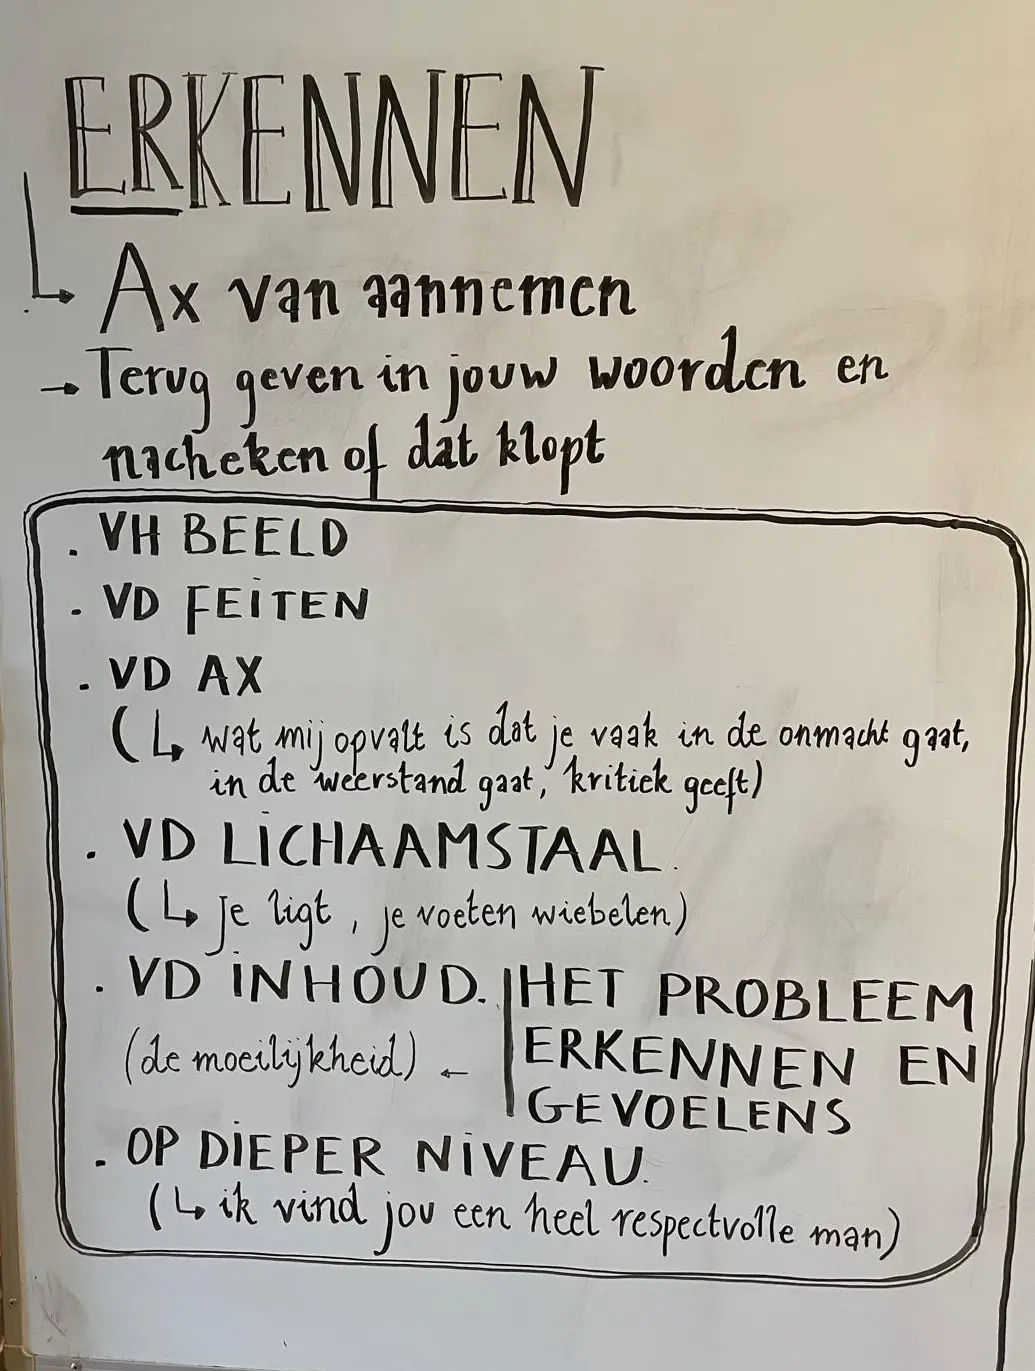 ERKENNEN
↳ Ax van aannemen
→ Terug geven in jouw woorden en
nacheken of dat klopt
. VH BEELD
. VD FEITEN
. VD AX
(↳ wat mij opvalt is dat je vaak in de onmacht gaat,
in de weerstand gaat, kritiek geeft)
. VD LICHAAMSTAAL.
(↳ je ligt, je voeten wiebelen)
. VD INHOUD.
(de moeilijkheid) ←
HET PROBLEEM
ERKENNEN EN
GEVOELENS
. OP DIEPER NIVEAU.
(↳ ik vind jou een heel respectvolle man)